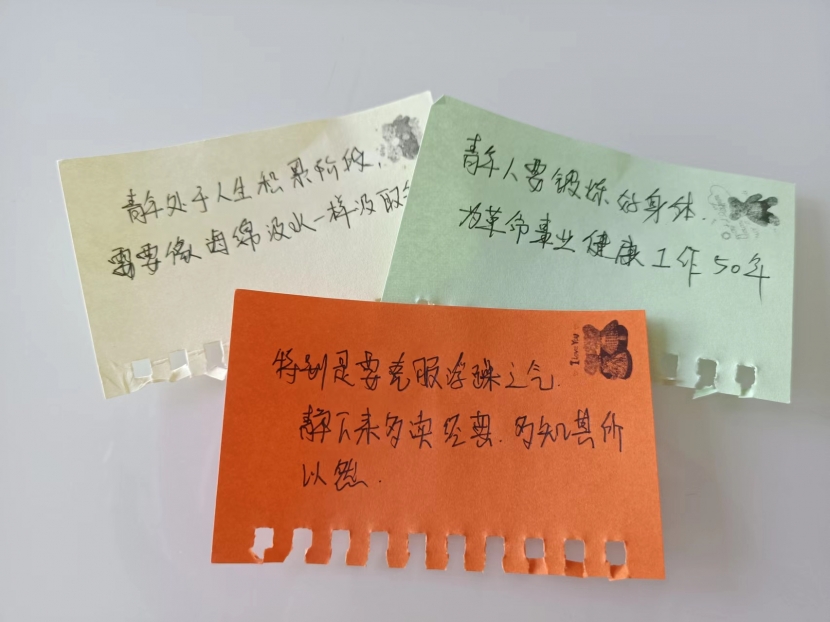 青年处于人生积累阶段,
需要像海绵汲水一样汲取
青年人要锻炼好身体.
为革命事业健康工作50年
特别是要克服浮躁之气.
静下来多读经典.多知其所
以然.
I Love You